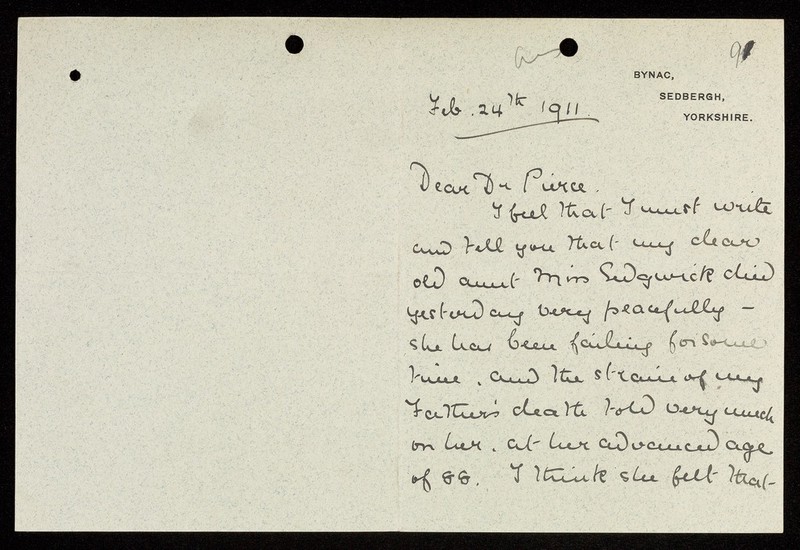 91
BYNAC,
SEDBERGH,
YORKSHIRE.
Feb. 24th 1911.
Dear Dr Pierce.
I feel that I must write
and tell you that my dear
old aunt Miss Sedgwick died
yesterday very peacefully –
she has been failing for some
time, and the strain of my
Father's death told very much
on her, at her advanced age
of 88. I think she felt that